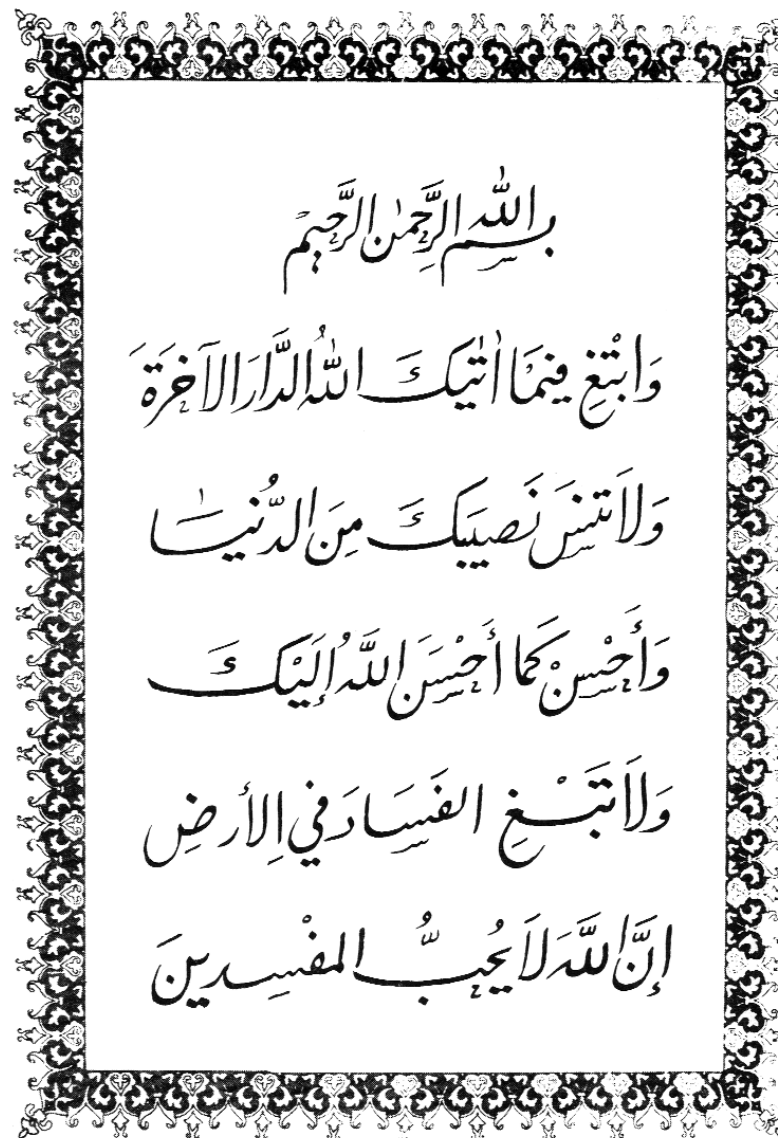 بِسْمِ اللّٰهِ الرَّحْمٰنِ الرَّحِيمْ
وَابْتَغِ فِيمَا اٰتٰيكَ اللّٰهُ الدَّارَ الاٰخِرَةَ
وَلاَ تَنسَ نَصِيبَكَ مِنَ الدُّنْيَا
وَأَحْسِنْ كَمَا أَحْسَنَ اللَّهُ إِلَيْكَ
وَلاَ تَبْغِ الفَسَادَ فِي الأرضِ
إِنَّ اللَّهَ لاَ يُحِبُّ المفْسِدِينَ